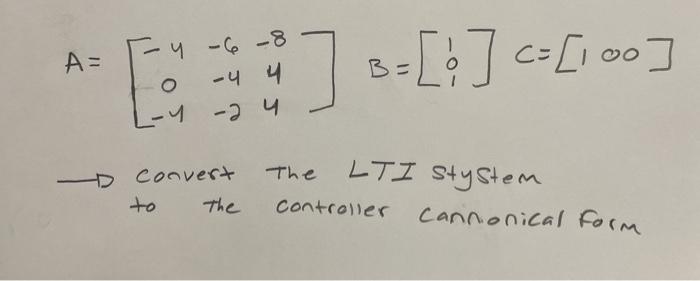 A = [ -4 -6 -8
0 -4 4
-4 -2 4 ] B = [ 1
0
1 ] C = [ 1 0 0 ]
→ convert the LTI stystem
to the controller cannonical form